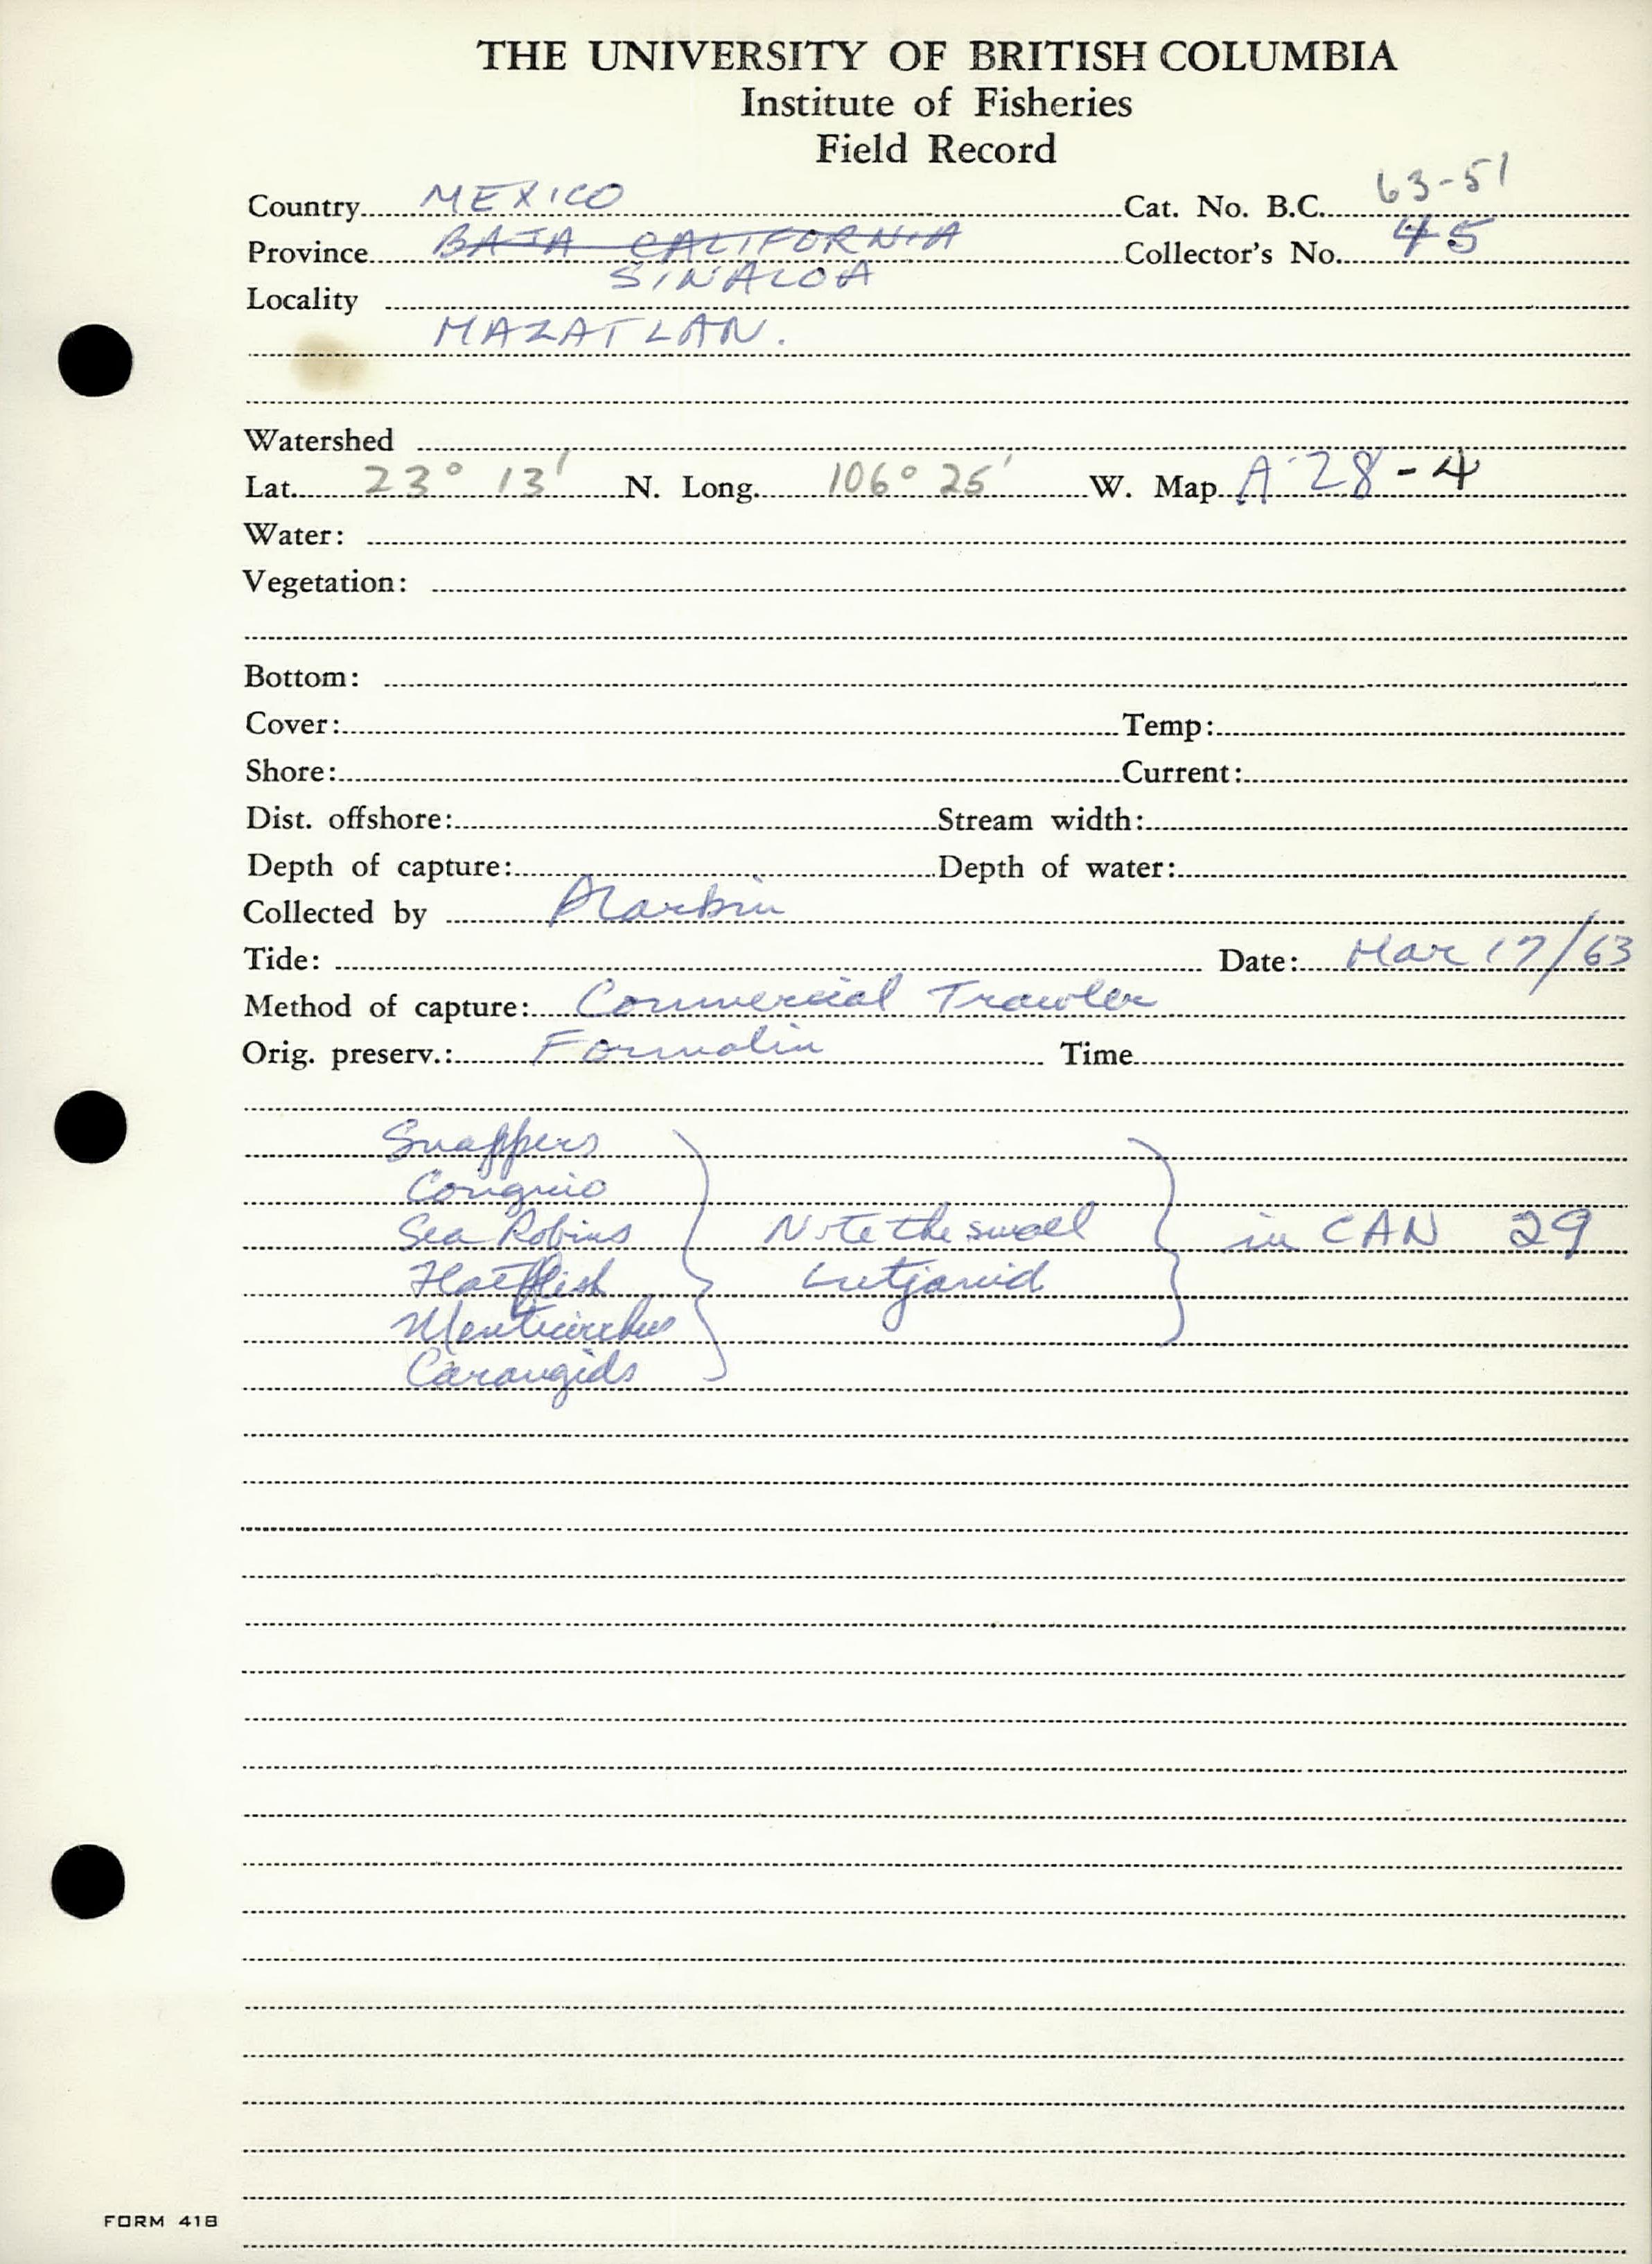 THE UNIVERSITY OF BRITISH COLUMBIA
Institute of Fisheries
Field Record
Country MEXICO Cat. No. B.C. 63-51
Province BAJA CALIFORNIA Collector's No. 45
SINALOA
Locality
MAZATLAN.
Watershed
Lat. 23° 13' N. Long. 106° 25' W. Map A 28-4
Water:
Vegetation:
Bottom:
Cover: Temp:
Shore: Current:
Dist. offshore: Stream width:
Depth of capture: Depth of water:
Collected by
Tide: Date: Mar 17/63
Method of capture: Commercial Trawler
Orig. preserv.: Formalin Time
Snappers
Sea Robins Note the small in CAN 29
Flatfish Lutjanid
Menticirrhus
Carangids
FORM 418